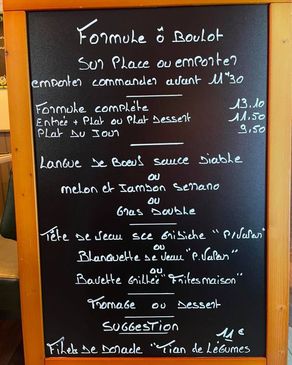 Formule ô Boulot
Sur Place ou emporter
emporter commander avant 11H30
Formule complète 13.10
Entrée + Plat ou Plat Dessert 11,50
Plat Du Jour 9,50
Langue De Boeuf sauce Diable
ou
melon et Jambon Serrano
ou
Gras Double
Tête de Veau sce Gribiche "P/Vapeur"
ou
Blanquette de Veau "P.Vapeur"
ou
Bavette Grillée "Frites maison"
Fromage ou Dessert
SUGGESTION
11€
Filets De Dorade "Tian de Légumes